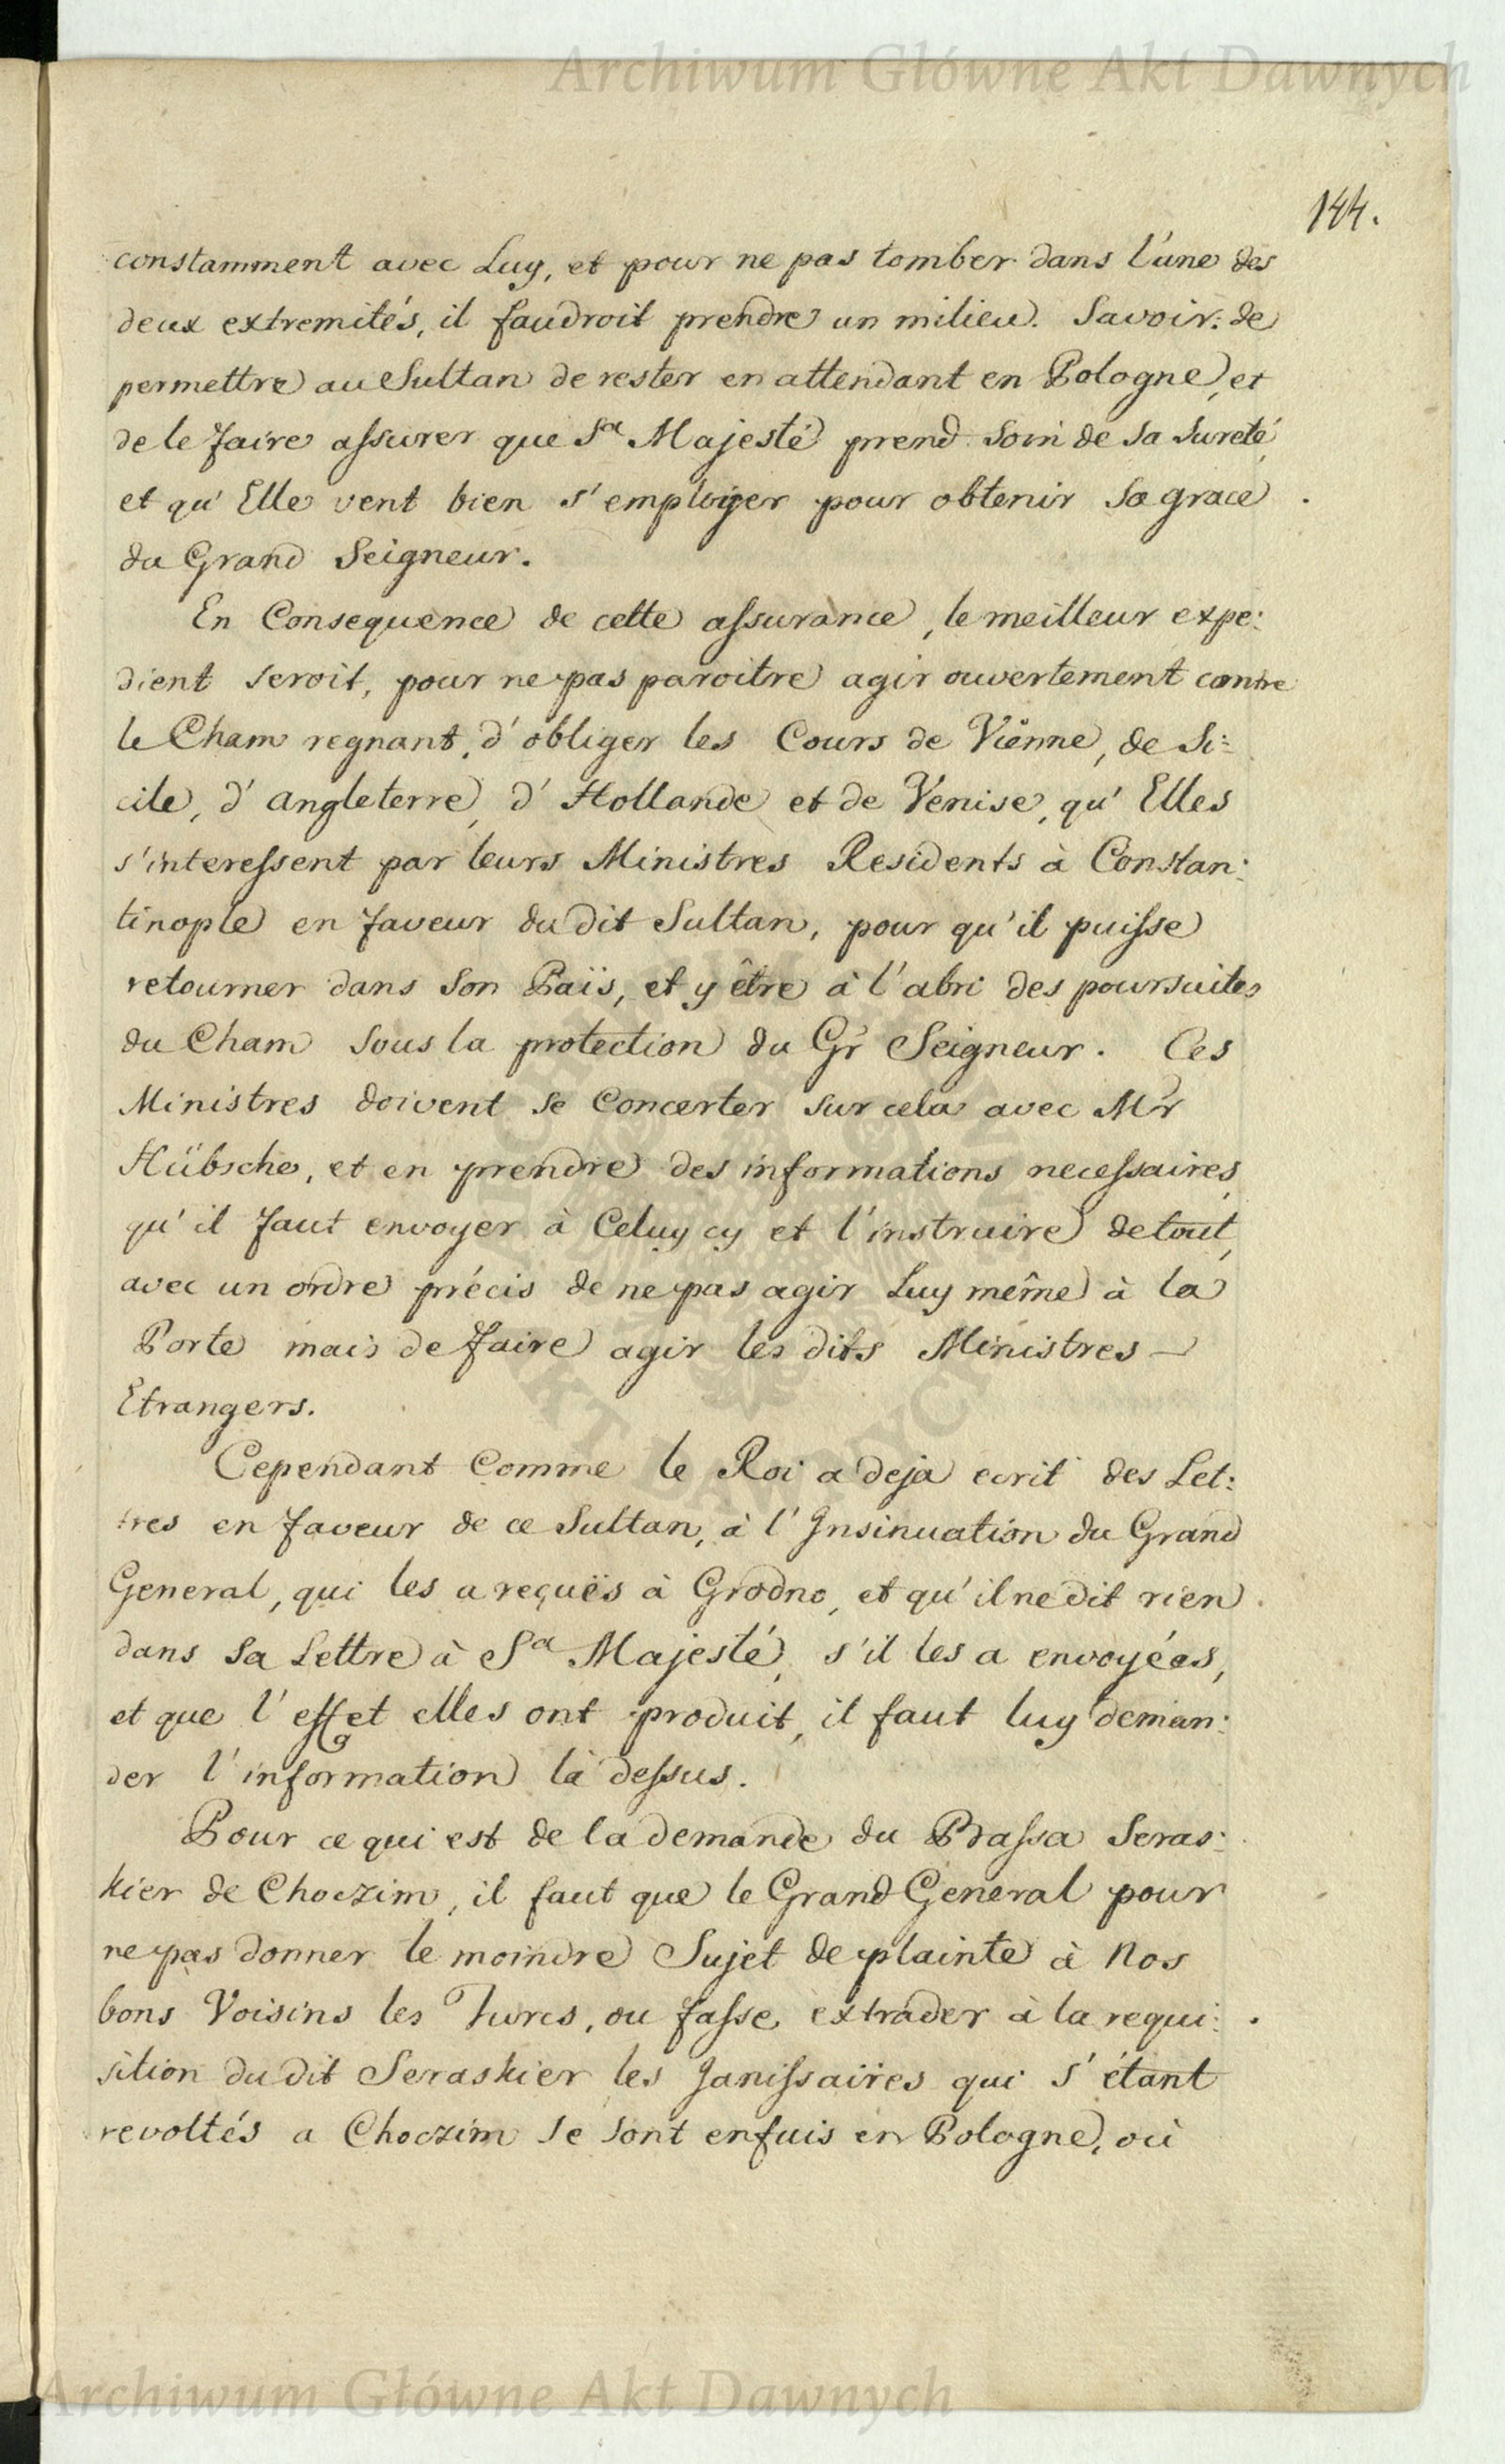 Archiwum Główne Akt Dawnych
144.
constamment avec Luy, et pour ne pas tomber dans l'une des
deux extremités, il faudroit prendre un milieu. Savoir: de
permettre au Sultan de rester en attendant en Pologne, et
de le faire assurer que Sa Majesté prend soin de sa sureté,
et qu'Elle vent bien s'employer pour obtenir sa grace
du Grand Seigneur.
En Consequence de cette assurance, le meilleur expe:
dient seroit, pour ne pas paroitre agir ouvertement contre
le Cham regnant, d'obliger les Cours de Viënne, de Si:
cile, d'angleterre, d'Hollande et de Venise, qu'Elles
s'interessent par leurs Ministres Residents à Constan:
tinople en faveur du dit Sultan, pour qu'il puisse
retourner dans son Païs, et y être à l'abri des poursuites
du Cham sous la protection du Gr Seigneur. Ces
Ministres doivent se Concerter sur cela avec Mr
Hübsche, et en prendre des informations necessaires,
qu'il faut envoyer à Celuy cy et l'instruire de tout,
avec un ordre précis de ne pas agir Luy même à la
Porte mais de faire agir les dits Ministres
Etrangers.
Cependant Comme le Roi a deja ecrit des Let:
tres en faveur de ce Sultan, à l'Insinuation du Grand
General, qui les a reçuës à Grodno, et qu'il ne dit rien
dans sa Lettre à Sa Majesté, s'il les a envoyées,
et que l'effet elles ont produit, il faut luy deman:
der l'information là dessus.
Pour ce qui est de la demande du Bassa Seras:
kier de Choczim, il faut que le Grand General pour
ne pas donner le moindre Sujet de plainte à Nos
bons Voisins les Turcs, ou fasse extrader à la requi:
sition du dit Seraskier les Janissaires qui s'étant
revoltés a Choczim se sont enfuis en Pologne, où
Archiwum Główne Akt Dawnych